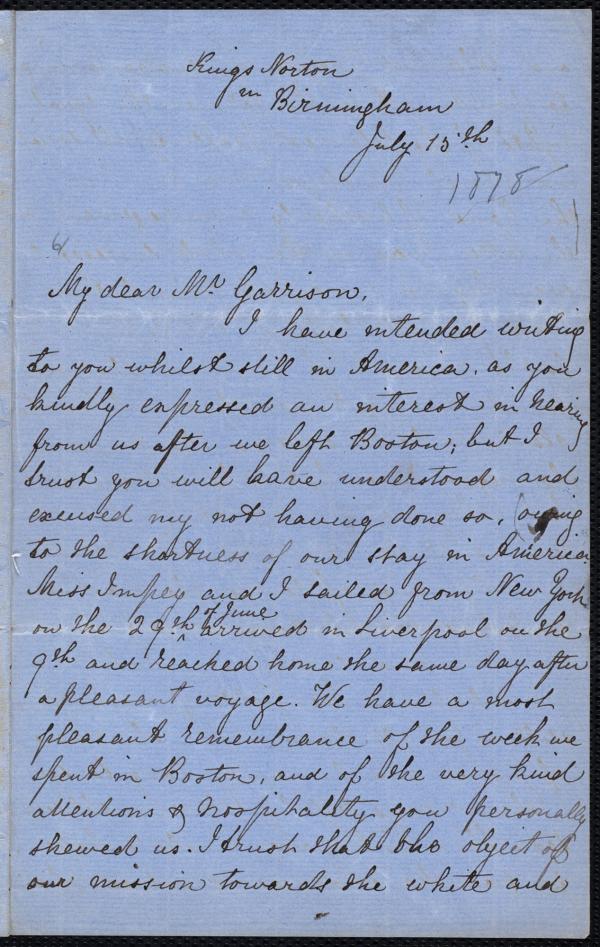 Kings Norton
nr Birmingham
July 15th
1878
My dear Mr Garrison,
I have intended writing
to you whilst still in America, as you
kindly expressed an interest in hearing
from us after we left Boston; but I
trust you will have understood and
excused my not having done so, (owing
to the shortness of our stay in America.
Miss Impey and I sailed from New York
on the 29th of June arrived in Liverpool on the
9th and reached home the same day after
a pleasant voyage. We have a most
pleasant remembrance of the week we
spent in Boston, and of the very kind
attentions & hospitality you personally
shewed us. I trust that the object of
our mission towards the white and